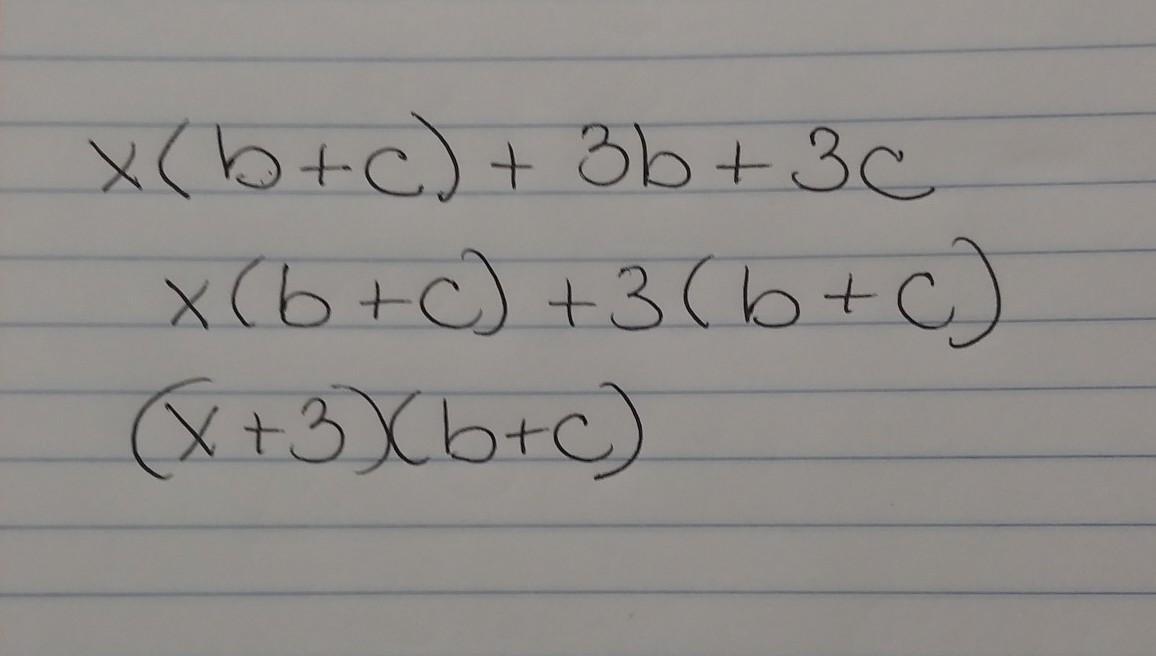 x(b+c) + 3b + 3c
x(b+c) +3(b+c)
(x+3)(b+c)